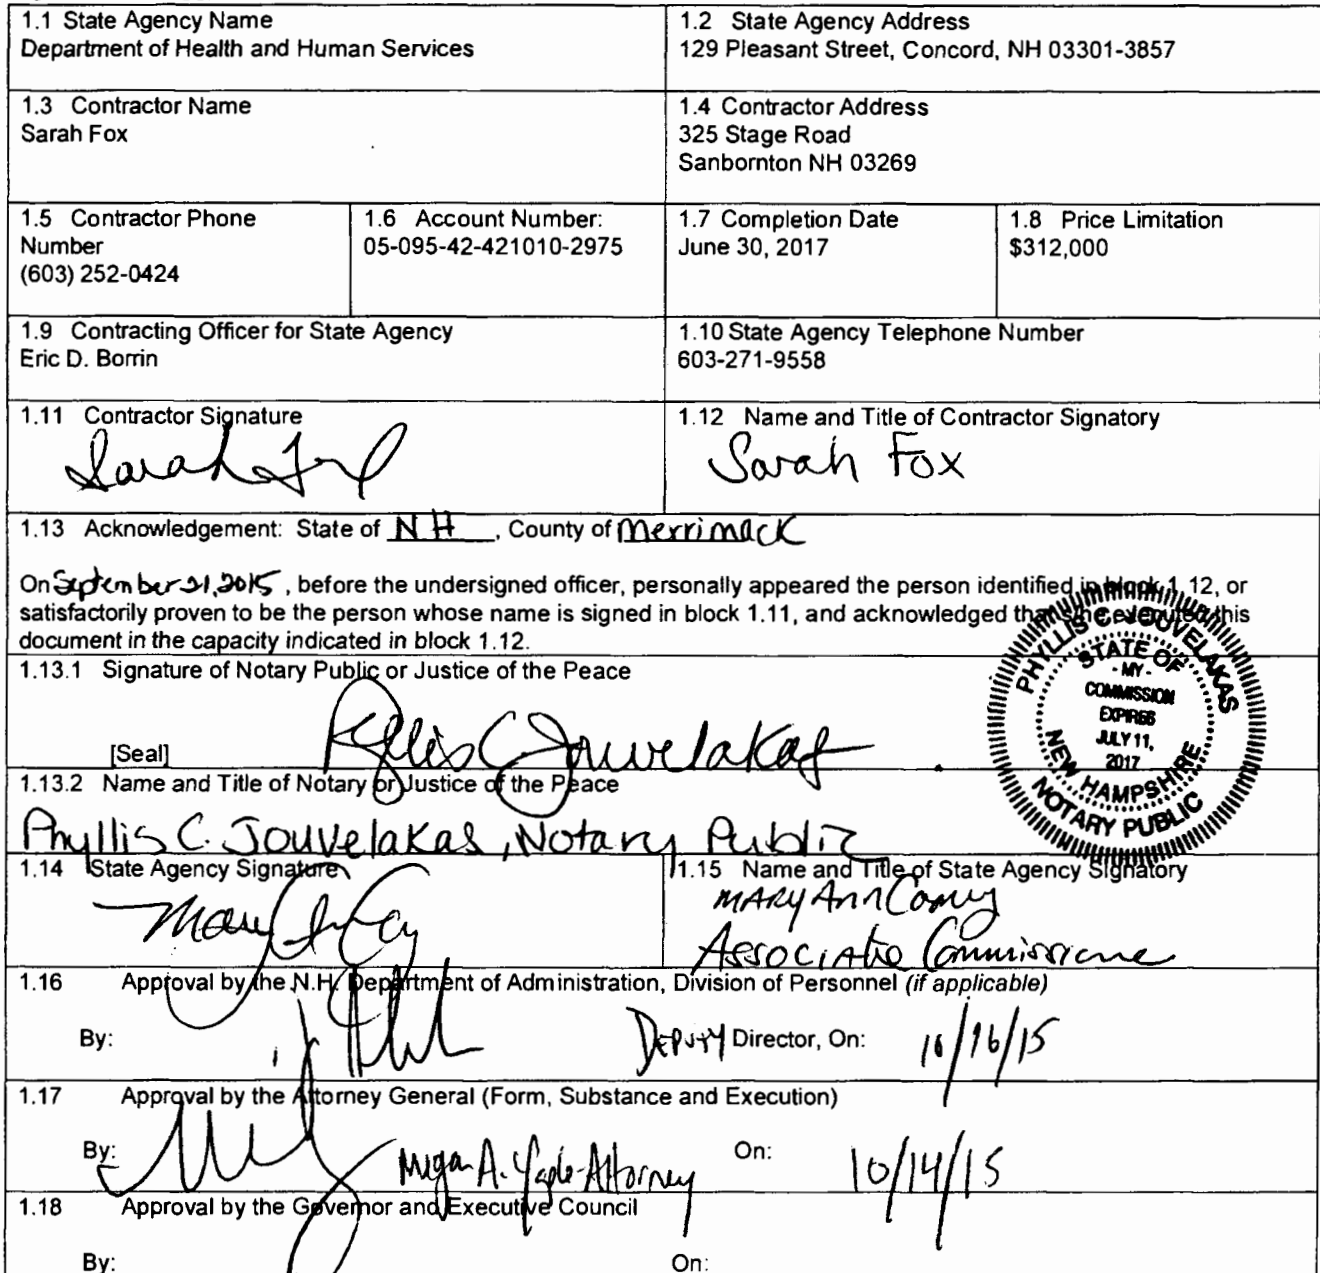 1.1 State Agency Name
Department of Health and Human Services
1.2 State Agency Address
129 Pleasant Street, Concord, NH 03301-3857
1.3 Contractor Name
Sarah Fox
1.4 Contractor Address
325 Stage Road
Sanbornton NH 03269
1.5 Contractor Phone
Number
(603) 252-0424
1.6 Account Number:
05-095-42-421010-2975
1.7 Completion Date
June 30, 2017
1.8 Price Limitation
$312,000
1.9 Contracting Officer for State Agency
Eric D. Borrin
1.10 State Agency Telephone Number
603-271-9558
1.11 Contractor Signature
Sarah Fox
1.12 Name and Title of Contractor Signatory
Sarah Fox
1.13 Acknowledgement: State of NH, County of Merrimack
On September 21, 2015, before the undersigned officer, personally appeared the person identified in block 1.12, or
satisfactorily proven to be the person whose name is signed in block 1.11, and acknowledged that s/he executed this
document in the capacity indicated in block 1.12.
PHYLLIS C. JOUVELAKAS
STATE OF
- MY -
COMMISSION
EXPIRES
JULY 11,
2017
NEW HAMPSHIRE
NOTARY PUBLIC
1.13.1 Signature of Notary Public or Justice of the Peace
[Seal]
Phyllis C Jouvelakas
1.13.2 Name and Title of Notary or Justice of the Peace
Phyllis C. Jouvelakas, Notary Public
1.14 State Agency Signature
1.15 Name and Title of State Agency Signatory
Mary Ann Cooney
Associate Commissioner
1.16 Approval by the N.H. Department of Administration, Division of Personnel (if applicable)
By:
Deputy Director, On: 10/16/15
1.17 Approval by the Attorney General (Form, Substance and Execution)
By: Megan A. Yaple-Attorney On: 10/14/15
1.18 Approval by the Governor and Executive Council
By: On: